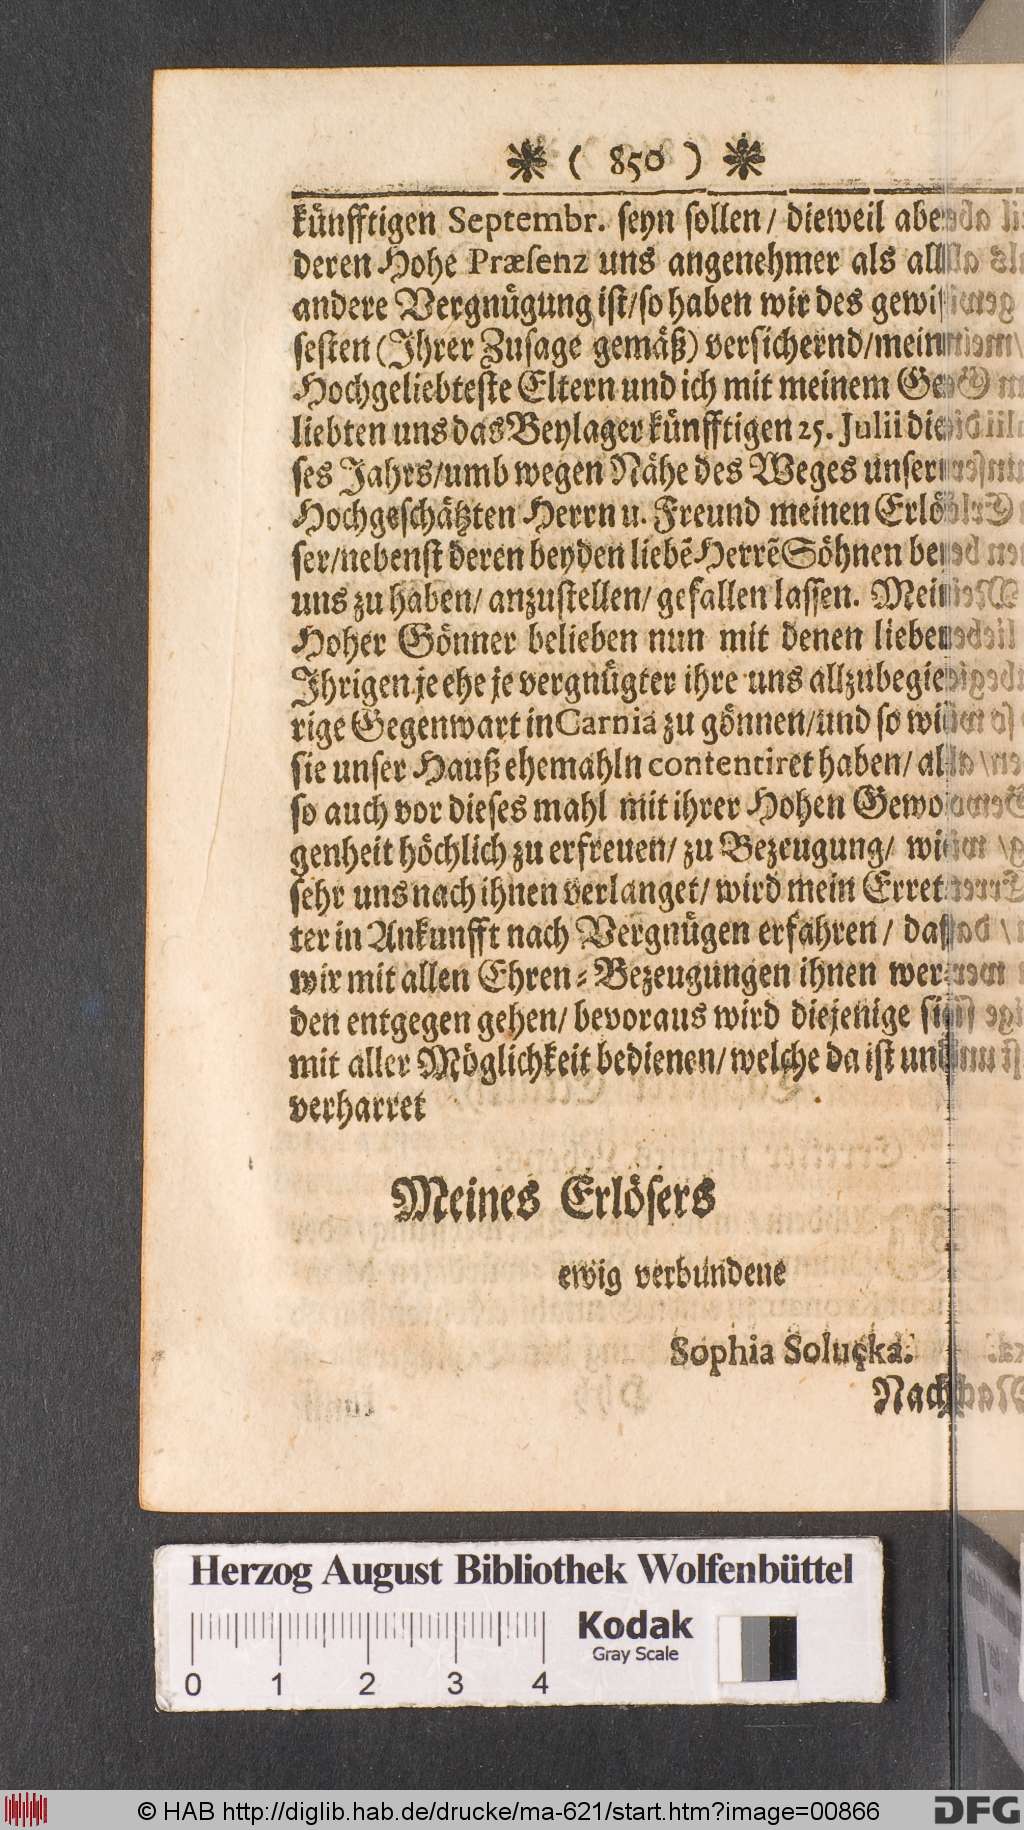 ❋ ( 850 ) ❋
künfftigen Septembr. seyn sollen / dieweil abe
deren Hohe Præsenz uns angenehmer als all
andere Vergnügung ist/so haben wir des gewis
sesten (Ihrer Zusage gemäß) versichernd/mein
Hochgeliebteste Eltern und ich mit meinem Ge
liebten uns das Beylager künfftigen 25. Julii die
ses Jahrs/umb wegen Nähe des Weges unser
Hochgeschätzten Herrn u. Freund meinen Erlö
ser/nebenst deren beyden liebẽ Herrẽ Söhnen be
uns zu haben/ anzustellen/ gefallen lassen. Mei
Hoher Gönner belieben nun mit denen liebe
Ihrigen je ehe je vergnügter ihre uns allzubegie
rige Gegenwart in Carnia zu gönnen/und so wi
sie unser Hauß ehemahln contentiret haben/ al
so auch vor dieses mahl mit ihrer Hohen Gewo
genheit höchlich zu erfreuen/ zu Bezeugung/ wi
sehr uns nach ihnen verlanget/ wird mein Erret
ter in Ankunfft nach Vergnügen erfahren / daß
wir mit allen Ehren-Bezeugungen ihnen wer
den entgegen gehen/ bevoraus wird diejenige si
mit aller Möglichkeit bedienen/ welche da ist und
verharret
Meines Erlösers
ewig verbundene
Sophia Solučka.
Nach
Herzog August Bibliothek Wolfenbüttel
Kodak
Gray Scale
0 1 2 3 4
© HAB http://diglib.hab.de/drucke/ma-621/start.htm?image=00866
DFG